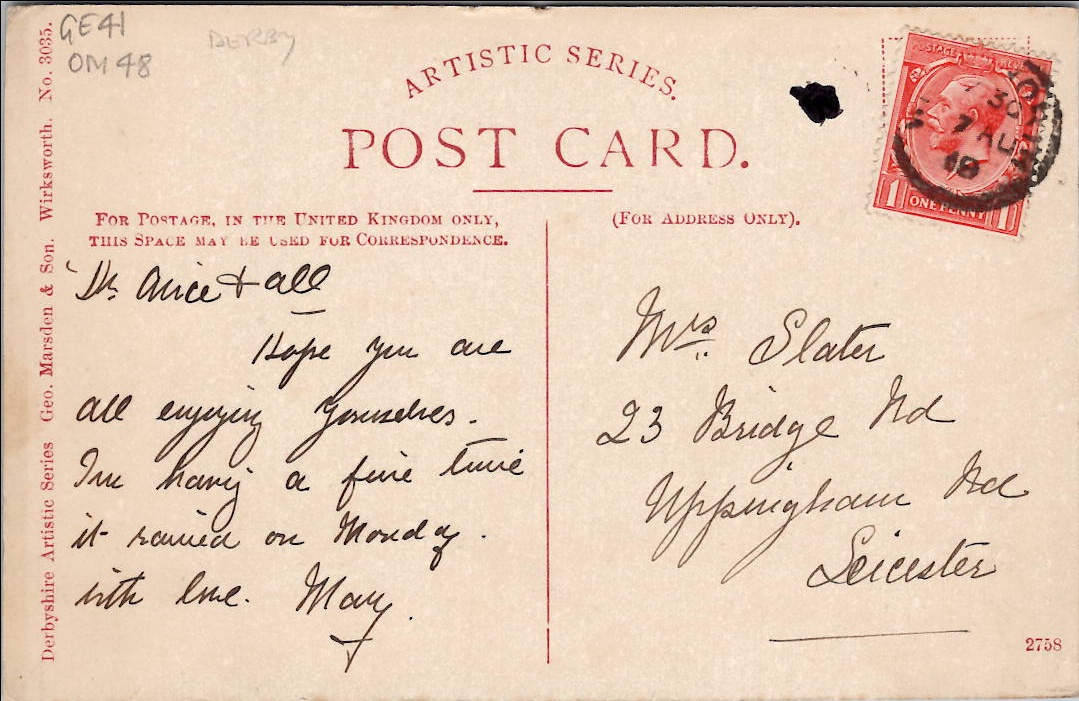 GE41
OM 48
DERBY
ARTISTIC SERIES.
POST CARD.
FOR POSTAGE, IN THE UNITED KINGDOM ONLY,
THIS SPACE MAY BE USED FOR CORRESPONDENCE.
(FOR ADDRESS ONLY).
POSTAGE REVENUE
30
7 AU
18
1 ONE PENNY 1
Dr Alice & all
Hope you are
all enjoying yourselves.
I'm having a fine time
it rained on Monday.
with love. May.
Mrs Slater
23 Bridge Rd
Uppingham Rd
Leicester
2758
Derbyshire Artistic Series Geo. Marsden & Son. Wirksworth. No. 3035.